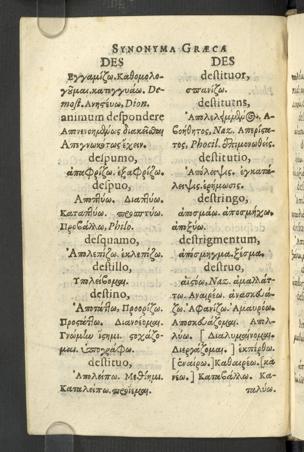 SYNONYMA GRÆCA
DES
Εγγαμίζω. Καθομολο-
γοῦμαι. κατηγγυάω. De-
most. Ανησεύω, Dion.
animum despondere
Απεγνωκότως ἔχειν.
despumo,
ἀπαφρίζω. ἐξαφρίζω.
despuo,
Αποπτύω. Διαπτύω.
Καταπτύω. προσπτύω.
Προβάλλω, Philo.
desquamo,
Ἀπολεπίζω. ἐκλεπίζω.
destillo,
destino,
Προορίζω.
Προστάττω. Διανοέομαι.
στοχάζο-
μαι. ὑπογράφω.
destituo,
Απολείπω. Μεθίημι.
Καταλείπω.
DES
destituor,
σπανίζω.
destitutus,
βοήθητος, Naz. Απερίστα-
τος, Phocil.
destitutio,
Ἀπόλειψις. ἐγκατά-
λειψις. ἐρήμωσις.
destringo,
ἀποσμάω. ἀποσμήχω.
ἀποξύω.
destrigmentum,
ἀπόσμηγμα. ξύσμα.
destruo,
Naz. ἀμαλλάτ-
τω. Αναιρέω. ἀνασκευά-
ζω. Αφανίζω. Αμαυρόω.
Αποσκευάζομαι. Απολ-
λύω. [ Διαλυμαίνομαι.
Διεργάζομαι. ] ἐκπέρθω.
[ ἐναίρω. ] Καθαιρέω. [κε-
νόω. ] Καταβάλλω. Κα-
ταλύω.